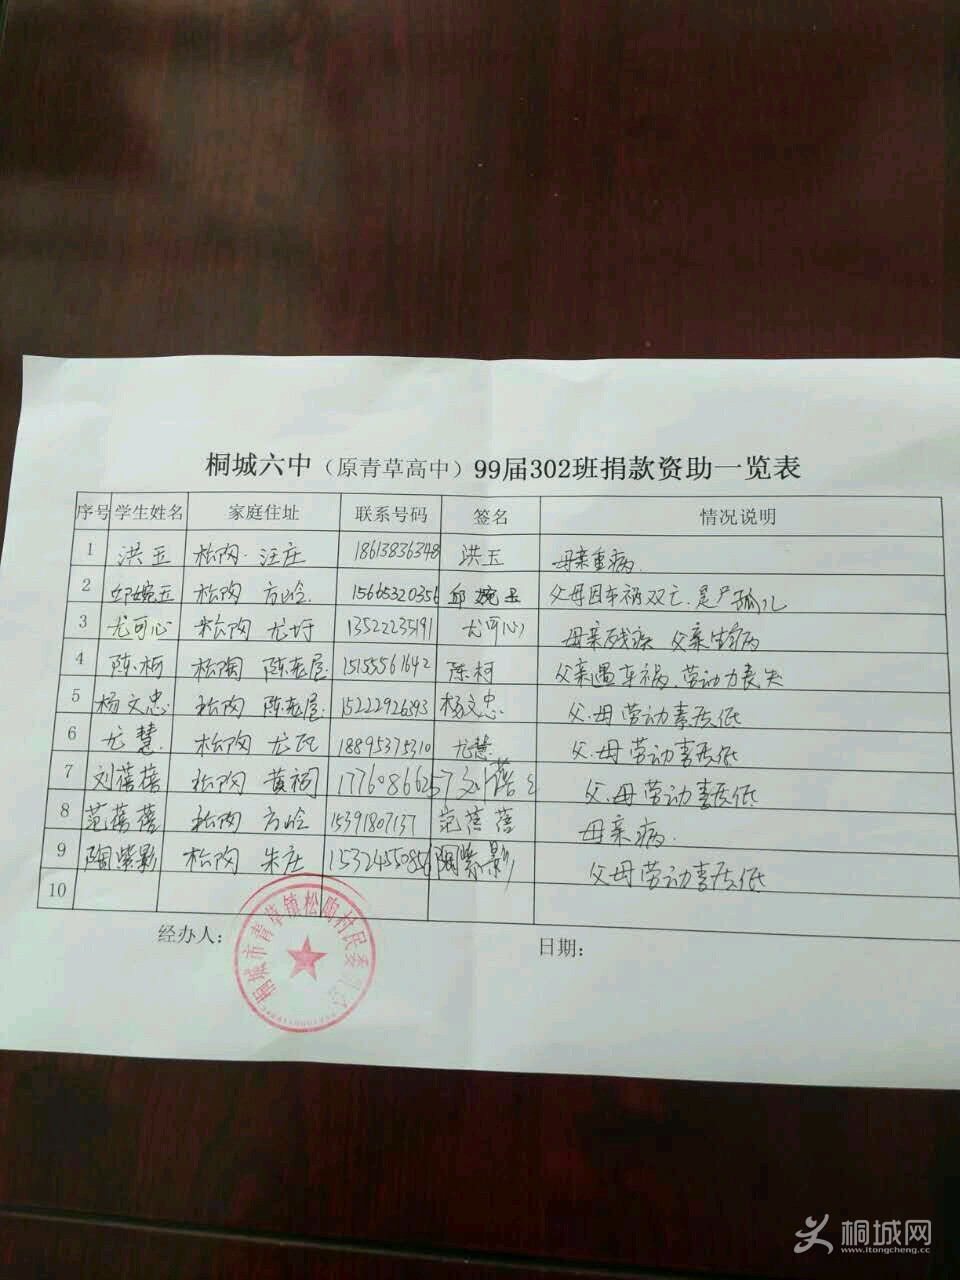 桐城六中（原青草高中）99届302班捐款资助一览表
序号 学生姓名 家庭住址 联系号码 签名 情况说明
1 洪玉 松陶 汪庄 18613836348 洪玉 母亲重病.
2 邱婉玉 松陶 方岭. 15665320356 邱婉玉 父母因车祸双亡.是孤儿
3 尤可心 松陶 尤圩 13522235191 尤可心 母亲残疾 父亲生病
4 陈柯 松陶 陈老屋 15155561642 陈柯 父亲遇车祸.劳动力丧失
5 杨文忠 松陶 陈老屋 15222926393 杨文忠. 父.母劳动素质低
6 尤慧 松陶 尤 18895375310 尤慧 父.母劳动素质低
7 刘蓓蓓 松陶 黄祠 父.母劳动素质低
8 范蓓蓓 松陶 方岭 15391807137 范蓓蓓 母亲病.
9 陶紫影 松陶 朱庄 陶紫影 父母劳动素质低
10
经办人： 日期：
桐城市青草镇松陶村民委员会
桐城网
www.itongcheng.cc